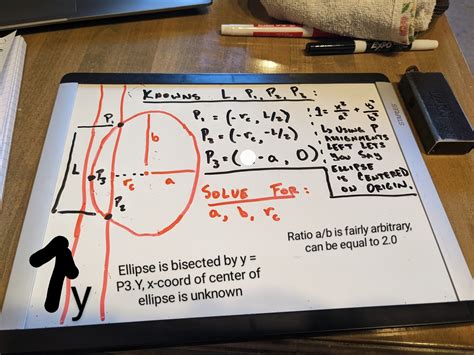 KNOWNS L, P1, P2, P3:
P1 = (-rc, L/2)
P2 = (-rc, -L/2)
P3 = ( -a, 0)
1 = x²/a² + y²/b²
USING P
ASSIGNMENTS
LEFT LETS
YOU SAY
ELLIPSE
IS CENTERED
ON ORIGIN.
SOLVE FOR:
a, b, rc
P1
b
L
P3
rc
a
P2
y
Ellipse is bisected by y =
P3.Y, x-coord of center of
ellipse is unknown
Ratio a/b is fairly arbitrary,
can be equal to 2.0
EXPO
STAPLES